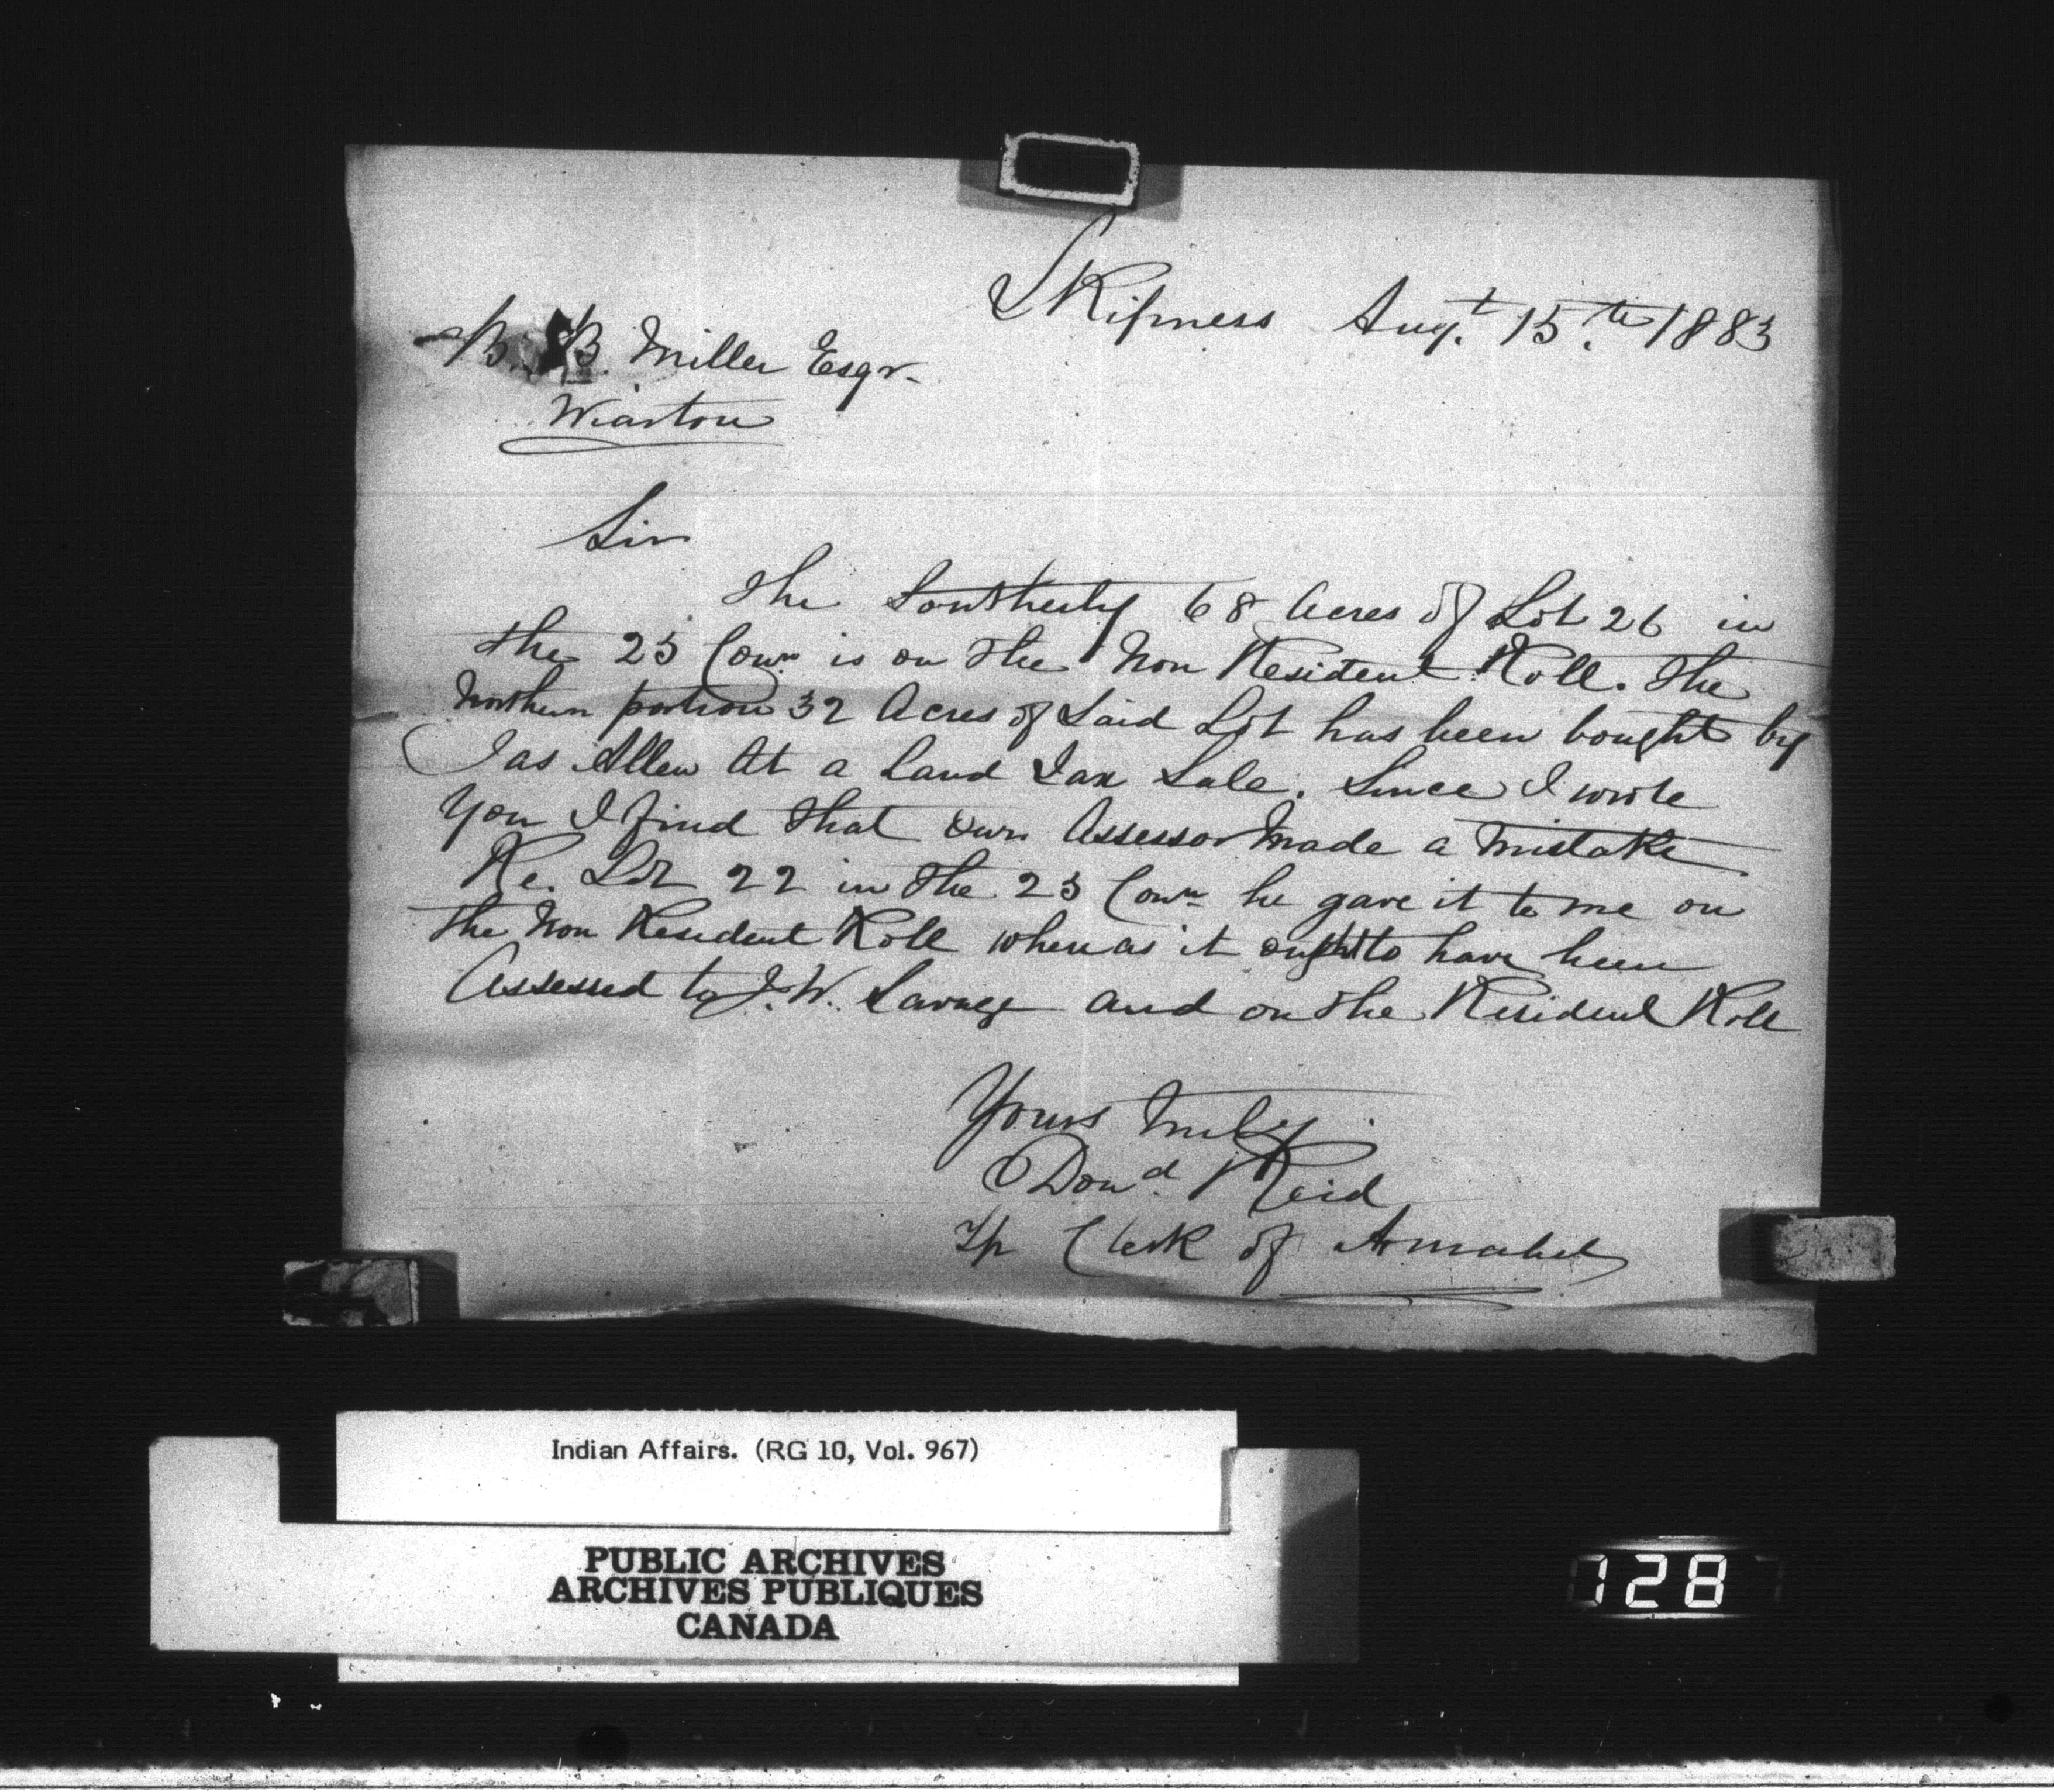 Skipness Augt. 15.th 1883
B. B. Miller Esqr.
Wiarton
Sir
The Southerly 68 Acres of Lot 26 in
the 23 Conn is on the Non Resident Roll. The
Northern portion 32 Acres of Said Lot has been bought by
Jas Allen At a Land Tax Sale. Since I wrote
You I find that our Assessor Made a Mistake
Re. Lot 22 in the 23 Conn he gave it to me on
the Non Resident Roll whereas it ought to have been
Assessed to J. W. Savage and on the Resident Roll
Yours truly
Dond. Reid
Tp Clerk of Amabel
Indian Affairs. (RG 10, Vol. 967)
PUBLIC ARCHIVES
ARCHIVES PUBLIQUES
CANADA
128